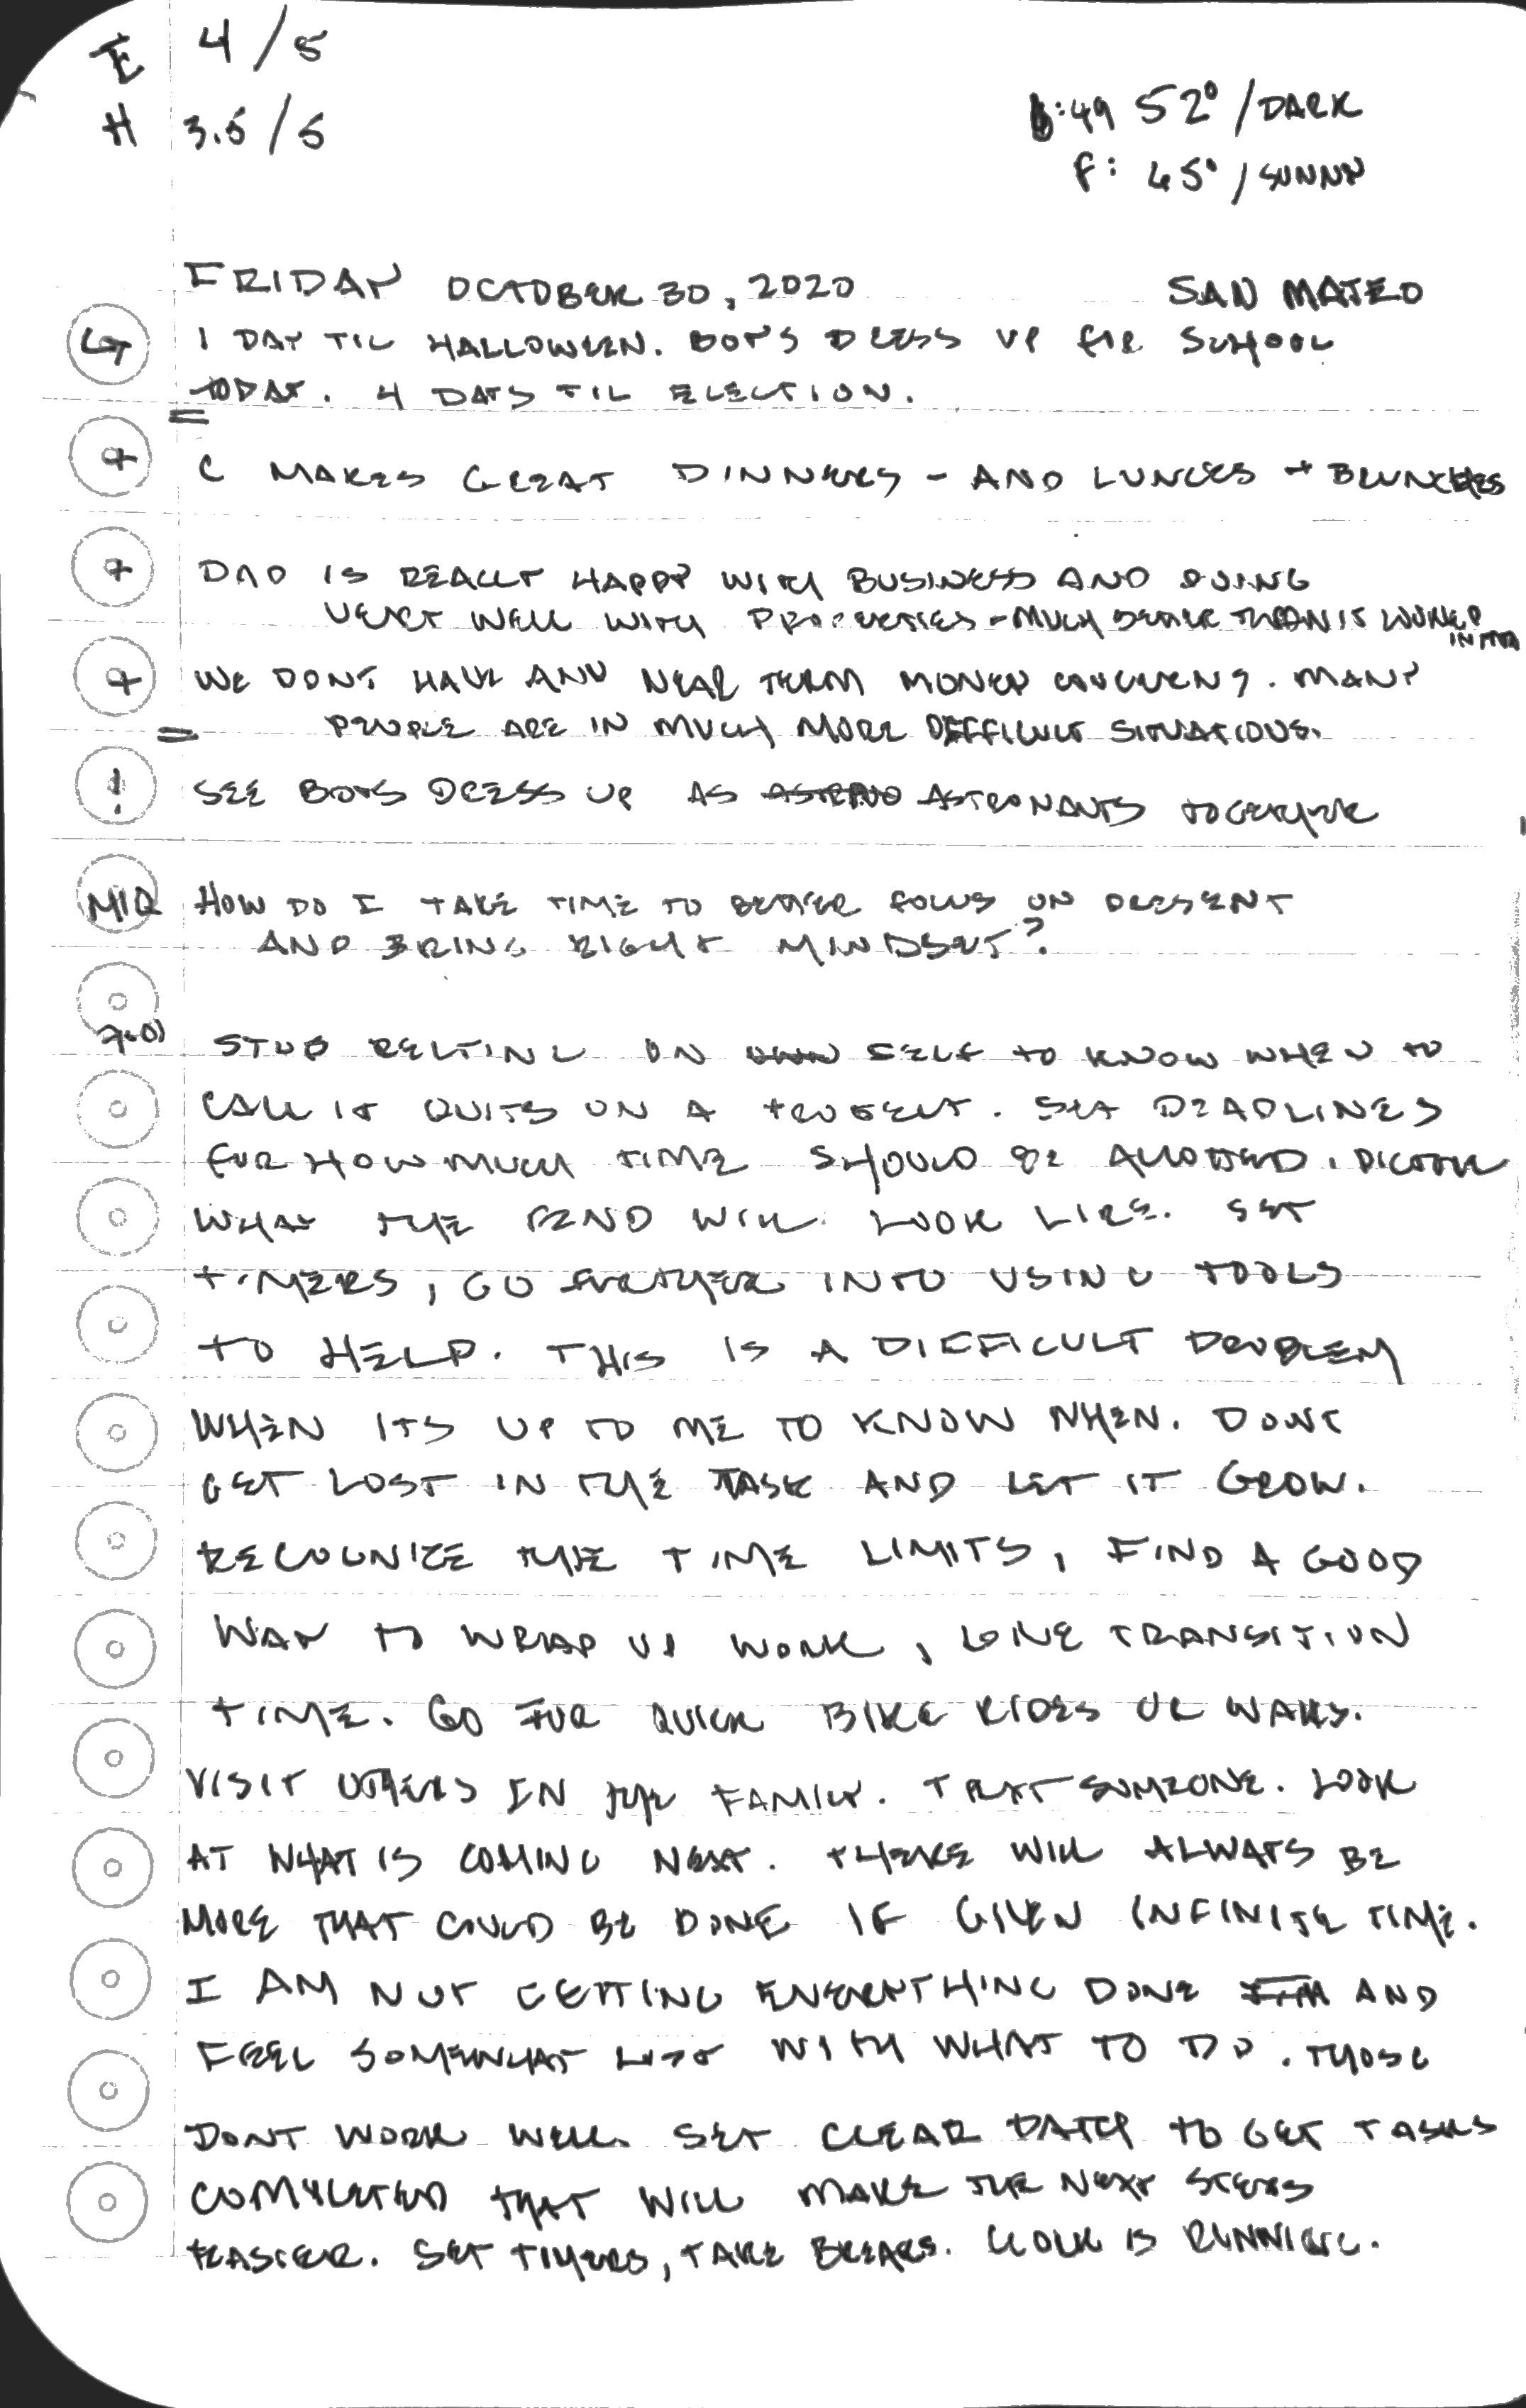 E 4/5
H 3.5/5
6:49 52°/DARK
F: 65°/SUNNY
FRIDAY OCTOBER 30, 2020 SAN MATEO
G 1 DAY TIL HALLOWEEN. BOYS DRESS UP FOR SCHOOL
TODAY. 4 DAYS TIL ELECTION.
=
+ C MAKES GREAT DINNERS - AND LUNCES + BRUNCHES
+ DAD IS REALLY HAPPY WITH BUSINESS AND DOING
VERY WELL WITH PROPERTIES - MUCH BETTER THAN IT LOOKED
IN
+ WE DONT HAVE ANY NEAR TERM MONEY CONCERNS. MANY
= PEOPLE ARE IN MUCH MORE DIFFICULT SITUATIONS.
! SEE BOYS DRESS UP AS ASTRO ASTRONAUTS TOGETHER
MIQ HOW DO I TAKE TIME TO BETTER FOCUS ON PRESENT
AND BRING RIGHT MINDSET?
7:01 STOP RELYING ON OWN SELF TO KNOW WHEN TO
CALL IT QUITS ON A PROJECT. SET DEADLINES
FOR HOW MUCH TIME SHOULD BE ALLOTTED. DICTATE
WHAT THE END WILL LOOK LIKE. SET
TIMERS, GO FURTHER INTO USING TOOLS
TO HELP. THIS IS A DIFFICULT PROBLEM
WHEN ITS UP TO ME TO KNOW WHEN. DONT
GET LOST IN THE TASK AND LET IT GROW.
RECOGNIZE THE TIME LIMITS, FIND A GOOD
WAY TO WRAP UP WORK, LOVE TRANSITION
TIME. GO FOR QUICK BIKE RIDES OR WALKS.
VISIT OTHERS IN THE FAMILY. TEXT SOMEONE. LOOK
AT WHAT IS COMING NEXT. THERE WILL ALWAYS BE
MORE THAT COULD BE DONE IF GIVEN INFINITE TIME.
I AM NOT GETTING EVERYTHING DONE AND
FEEL SOMEWHAT LOST WITH WHAT TO DO. THOSE
DONT WORK WELL. SET CLEAR PATH TO GET TASKS
COMPLETED THAT WILL MAKE THE NEXT STEPS
EASIER. SET TIMERS, TAKE BREAKS. CLOCK IS RUNNING.